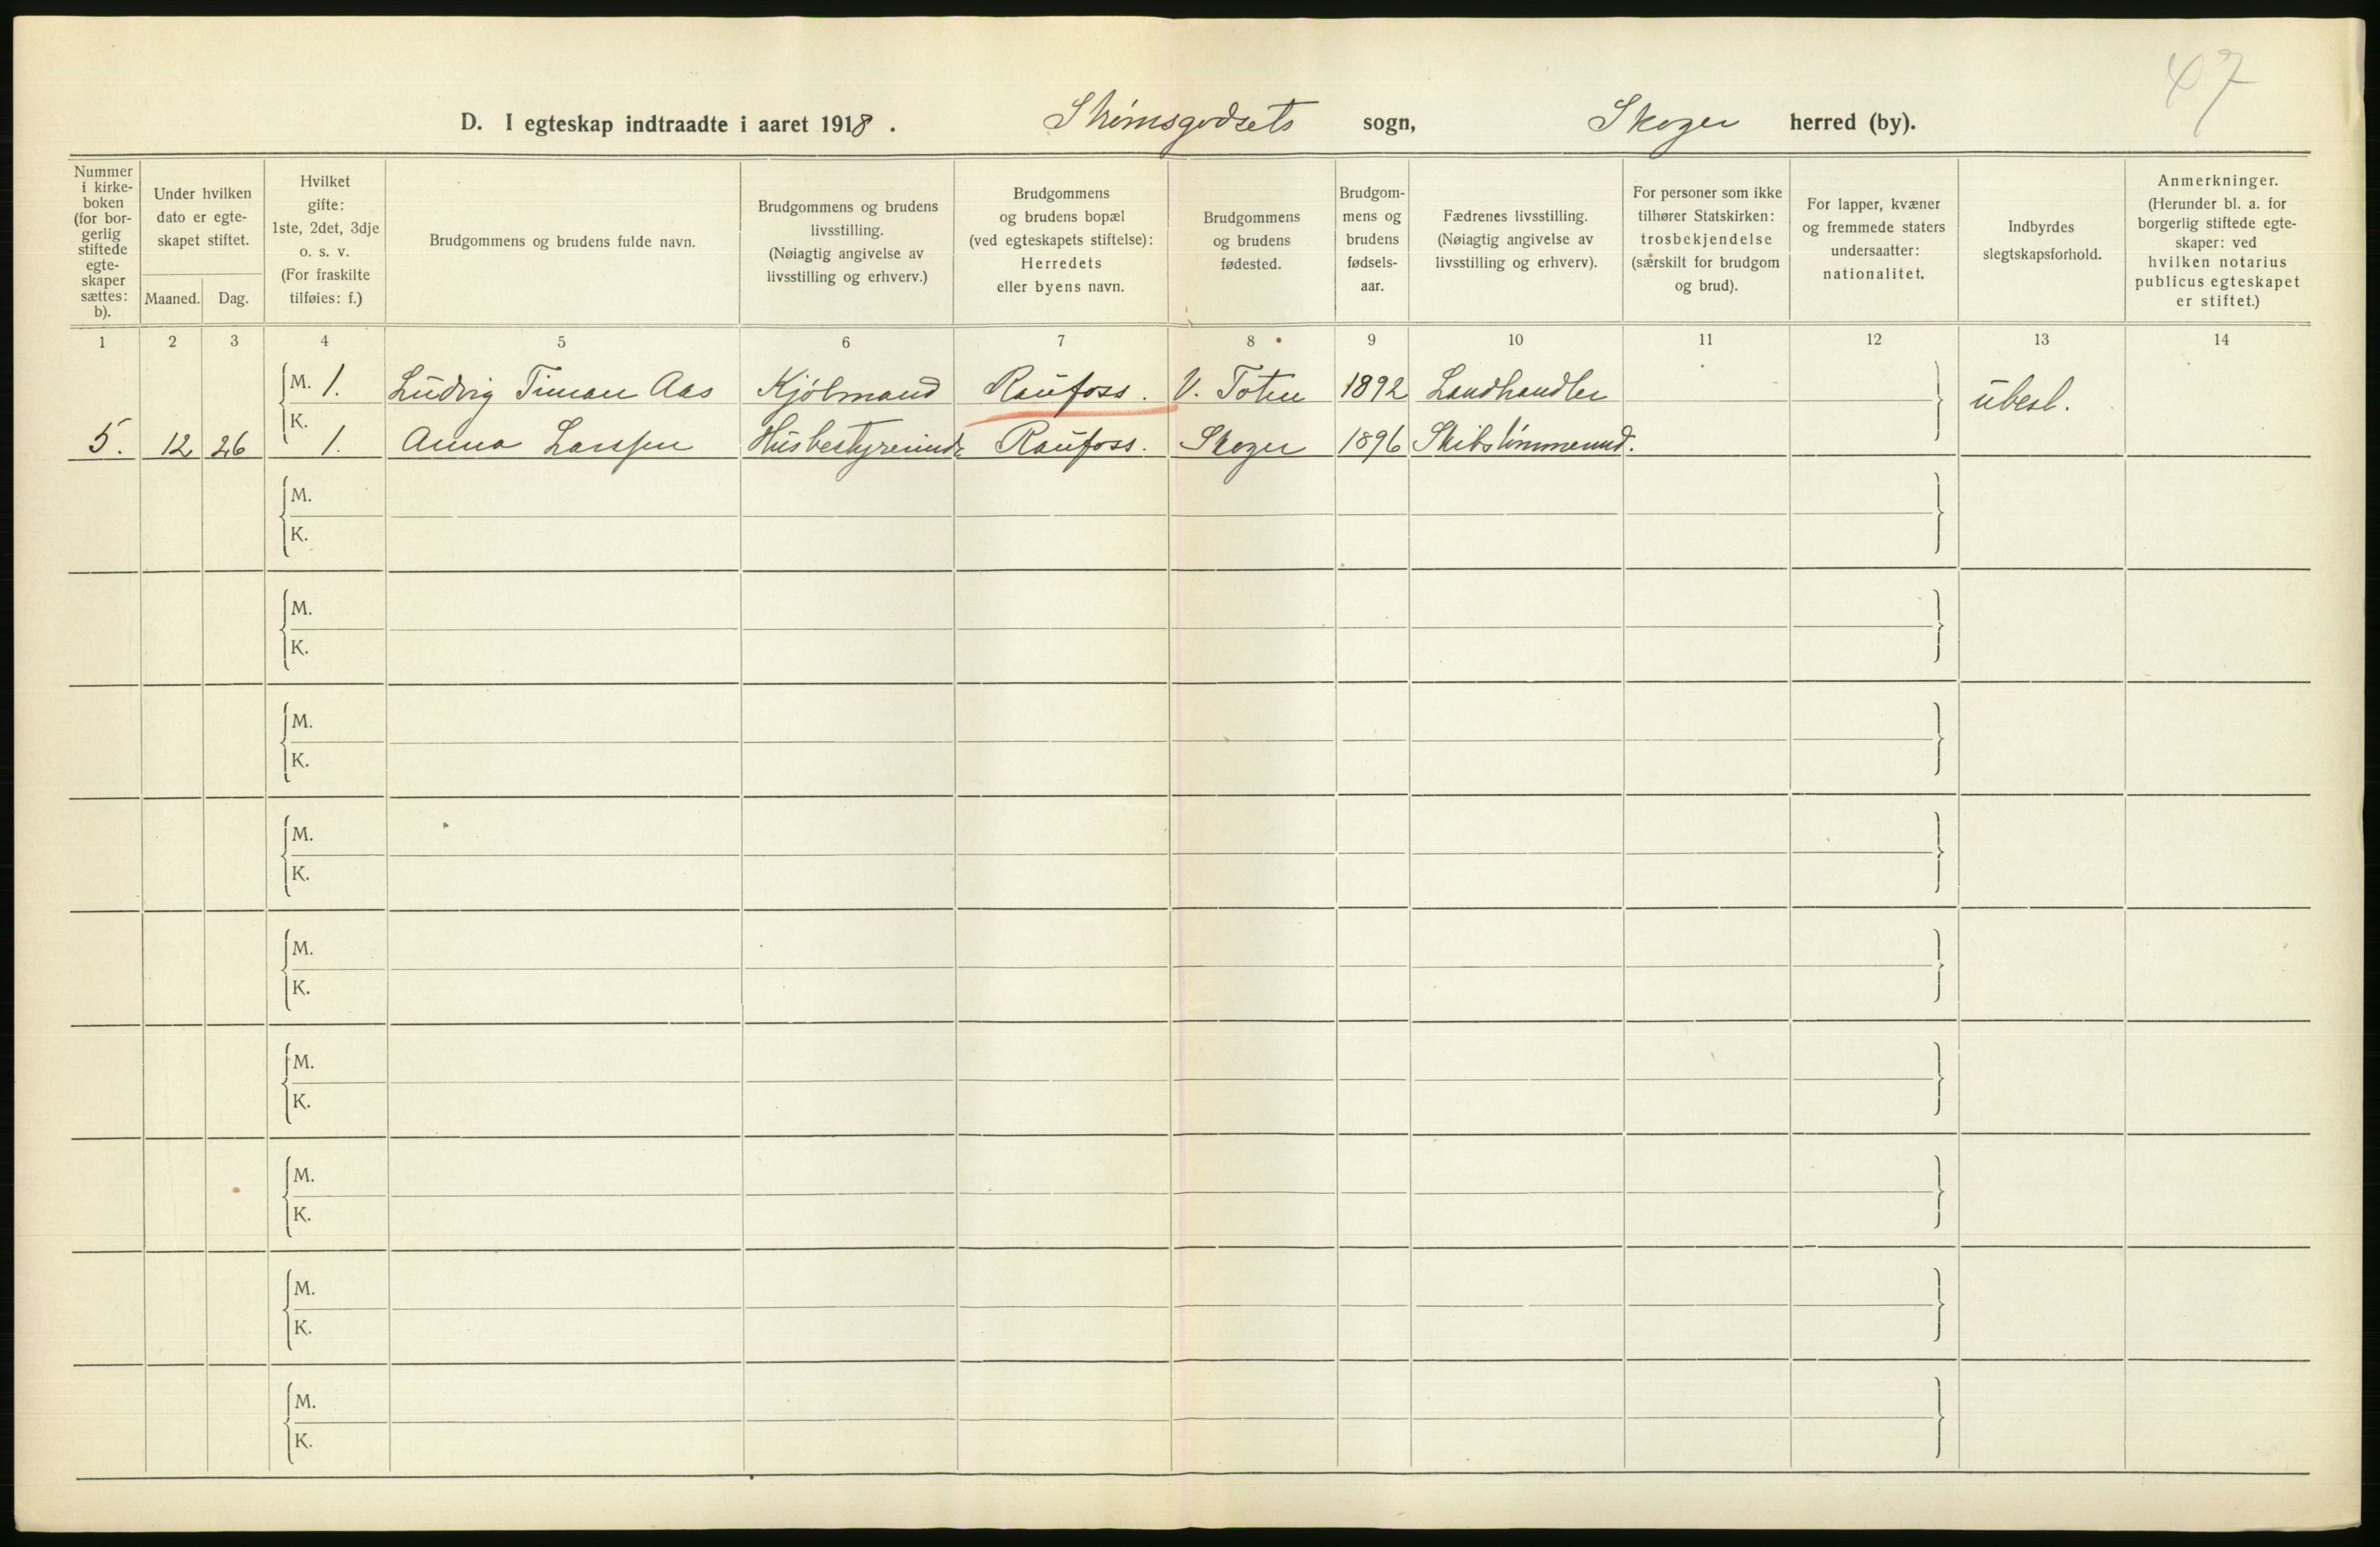 47
D. I egteskap indtraadte i aaret 1918. Strömsgodsets sogn, Skoger herred (by).
Nummer i kirke- boken (for bor- gerlig stiftede egte- skaper sættes: b).
Under hvilken dato er egte- skapet stiftet.
Maaned. Dag.
Hvilket gifte: 1ste, 2det, 3dje o. s. v. (For fraskilte tilføies: f.)
Brudgommens og brudens fulde navn.
Brudgommens og brudens livsstilling. (Nøiagtig angivelse av livsstilling og erhverv.)
Brudgommens og brudens bopæl (ved egteskapets stiftelse): Herredets eller byens navn.
Brudgommens og brudens fødested.
Brudgom- mens og brudens fødsels- aar.
Fædrenes livsstilling. (Nøiagtig angivelse av livsstilling og erhverv).
For personer som ikke tilhører Statskirken: trosbekjendelse (særskilt for brudgom og brud).
For lapper, kvæner og fremmede staters undersaatter: nationalitet.
Indbyrdes slegtskapsforhold.
Anmerkninger. (Herunder bl. a. for borgerlig stiftede egte- skaper: ved hvilken notarius publicus egteskapet er stiftet.)
1 2 3 4 5 6 7 8 9 10 11 12 13 14
M. 1. Ludvig Timan Aas Kjölmand Raufoss. V. Toten 1892 Landhandler ubesl.
5. 12 26 K. 1. Anna Larssen Husbestyrerinde Raufoss. Skoger 1896 Skibstömmermd.
M.
K.
M.
K.
M.
K.
M.
K.
M.
K.
M.
K.
M.
K.
M.
K.
M.
K.